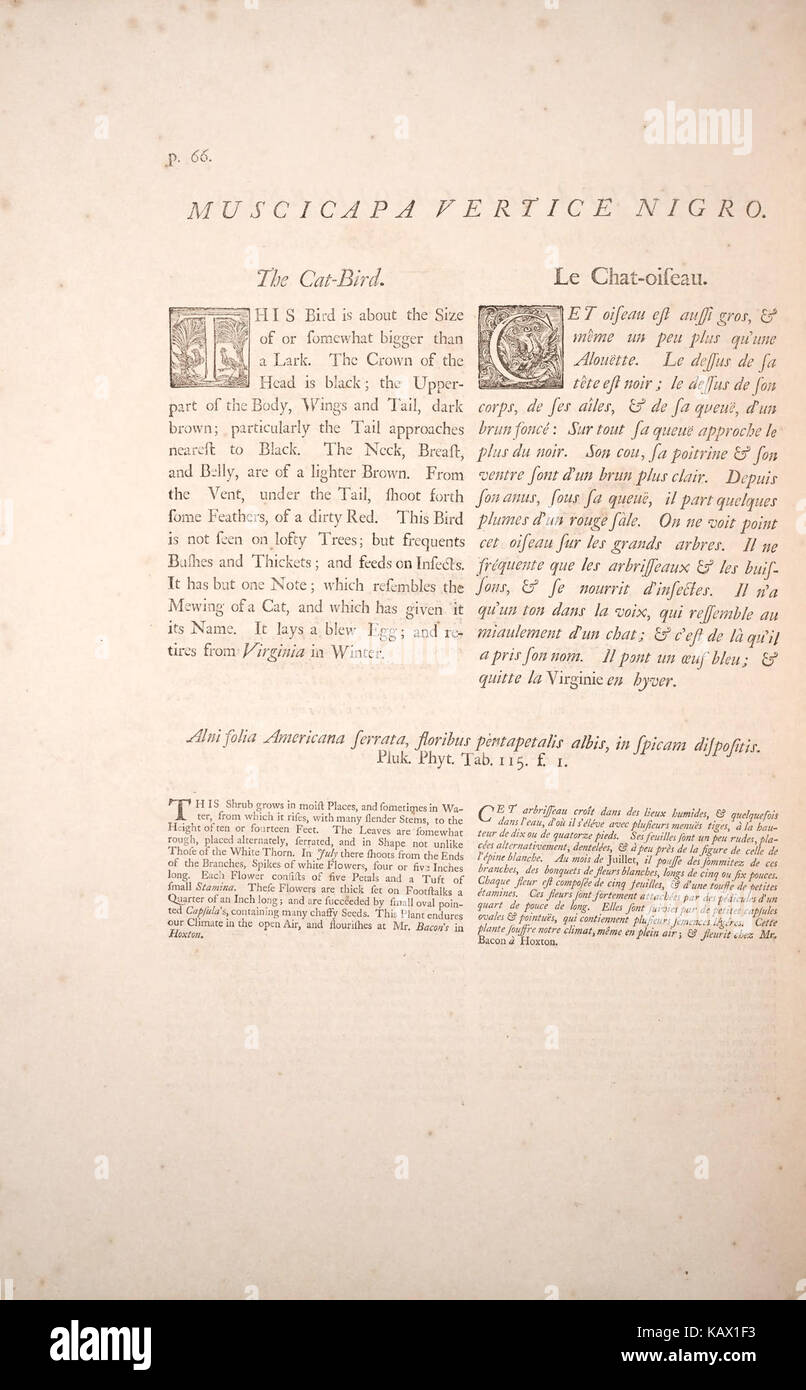 p. 66.
MUSCICAPA VERTICE NIGRO.
The Cat-Bird.
THIS Bird is about the Size
of or ſomewhat bigger than
a Lark. The Crown of the
Head is black; the Upper-
part of the Body, Wings and Tail, dark
brown; particularly the Tail approaches
neareſt to Black. The Neck, Breaſt,
and Belly, are of a lighter Brown. From
the Vent, under the Tail, ſhoot forth
ſome Feathers, of a dirty Red. This Bird
is not ſeen on lofty Trees; but frequents
Buſhes and Thickets; and feeds on Inſects.
It has but one Note; which reſembles the
Mewing of a Cat, and which has given it
its Name. It lays a blew Egg; and re-
tires from Virginia in Winter.
Le Chat-oiſeau.
CET oiſeau eſt auſſi gros, &
même un peu plus qu'une
Alouëtte. Le deſſus de ſa
tête eſt noir; le deſſus de ſon
corps, de ſes aîles, & de ſa queuë, d'un
brun foncé: Sur tout ſa queuë approche le
plus du noir. Son cou, ſa poitrine & ſon
ventre ſont d'un brun plus clair. Depuis
ſon anus, ſous ſa queuë, il part quelques
plumes d'un rouge ſâle. On ne voit point
cet oiſeau ſur les grands arbres. Il ne
fréquente que les arbriſſeaux & les buiſ-
ſons, & ſe nourrit d'inſectes. Il n'a
qu'un ton dans la voix, qui reſſemble au
miaulement d'un chat; & c'eſt de là qu'il
a pris ſon nom. Il pont un œuf bleu; &
quitte la Virginie en hyver.
Alni folia Americana ſerrata, floribus pentapetalis albis, in ſpicam diſpoſitis.
Pluk. Phyt. Tab. 115. f. 1.
THIS Shrub grows in moiſt Places, and ſometimes in Wa-
ter, from which it riſes, with many ſlender Stems, to the
Height of ten or fourteen Feet. The Leaves are ſomewhat
rough, placed alternately, ſerrated, and in Shape not unlike
Thoſe of the White Thorn. In July there ſhoots from the Ends
of the Branches, Spikes of white Flowers, four or five Inches
long. Each Flower conſiſts of five Petals and a Tuft of
ſmall Stamina. Theſe Flowers are thick ſet on Footſtalks a
Quarter of an Inch long; and are ſucceeded by ſmall oval poin-
ted Capſula's, containing many chaffy Seeds. This Plant endures
our Climate in the open Air, and flouriſhes at Mr. Bacon's in
Hoxton.
CET arbriſſeau croît dans des lieux humides, & quelquefois
dans l'eau, d'où il s'élêve avec pluſieurs menuës tiges, à la hau-
teur de dix ou de quatorze pieds. Ses feuilles ſont un peu rudes, pla-
cées alternativement, dentelées, & à peu près de la figure de celle de
l'épine blanche. Au mois de Juillet, il pouſſe des ſommitez de ces
branches, des bonquets de fleurs blanches, longs de cinq ou ſix pouces.
Chaque fleur eſt compoſée de cinq feuilles, & d'une touffe de petites
étamines. Ces fleurs ſont fortement attachées par des pédicules d'un
quart de pouce de long. Elles ſont ſuivies par de petites capſules
ovales & pointuës, qui contiennent pluſieurs ſemences légères. Cette
plante ſouffre notre climat, même en plein air; & fleurit chez Mr.
Bacon à Hoxton.
alamy
alamy
a
alamy
Image ID: KAX1F3
www.alamy.com